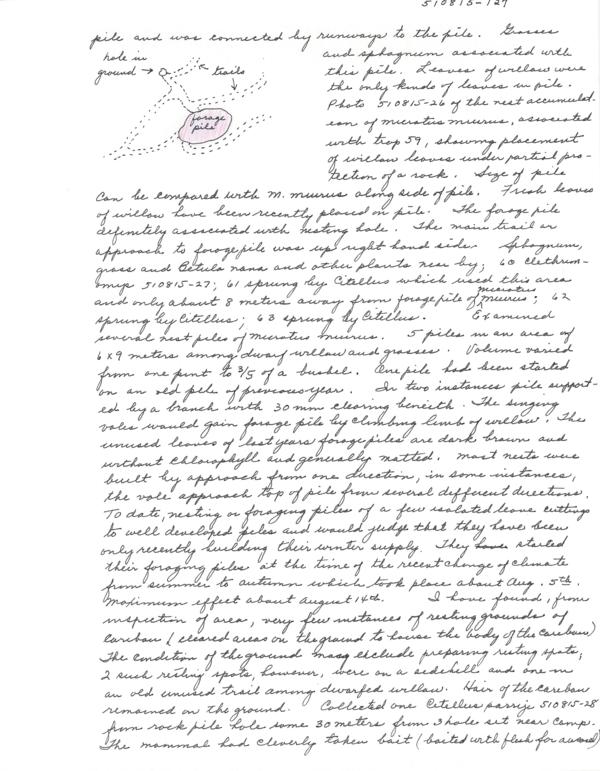 510815-127
pile and was connected by runways to the pile. Grasses
hole in
ground
trails
forage
pile
and sphagnum associated with
this pile. Leaves of willow were
the only kinds of leaves in pile.
Photo 510815-26 of the nest accumulat-
ion of microtus miurus, associated
with trap 59, showing placement
of willow leaves under partial pro-
tection of a rock. Size of pile
can be compared with M. miurus along side of pile. Fresh leaves
of willow have been recently placed on pile. The forage pile
definitely associated with nesting hole. The main trail or
approach to forage pile was up right hand side. Sphagnum,
grass and Betula nana and other plants near by; 60 Clethrion-
omys 510815-27; 61 sprung by Citellus which used this area
and only about 8 meters away from forage pile of microtus miurus; 62
sprung by Citellus; 63 sprung by Citellus. Examined
several nest piles of microtus miurus. 5 piles in an area of
6 x 9 meters among dwarf willow and grasses. Volume varied
from one pint to 3/5 of a bushel. One pile had been started
on an old pile of previous year. In two instances pile support-
ed by a branch with 30 mm clearing beneith. The singing
voles would gain forage pile by climbing limb of willow. The
unused leaves of last years forage piles are dark brown and
without chlorophyll and generally matted. Most nests were
built by approach from one direction, in some instances,
the vole approach top of pile from several different directions.
To date, nesting or foraging piles of a few isolated leave cuttings
to well developed piles and would judge that they have been
only recently building their winter supply. They have started
their foraging piles at the time of the recent change of climate
from summer to autumn which took place about Aug. 5th.
Maximum effect about August 14th. I have found, from
inspection of area, very few instances of resting grounds of
caribou (cleared areas on the ground to house the body of the caribou)
The condition of the ground may exclude preparing resting spots;
2 such resting spots, however, were on a sidehill and one in
an old unused trail among dwarfed willow. Hair of the caribou
remained on the ground. Collected one Citellus parryii 510815-28
from rock pile hole some 30 meters from 3 hole set near camp.
The mammal had cleverly taken bait (baited with flesh for